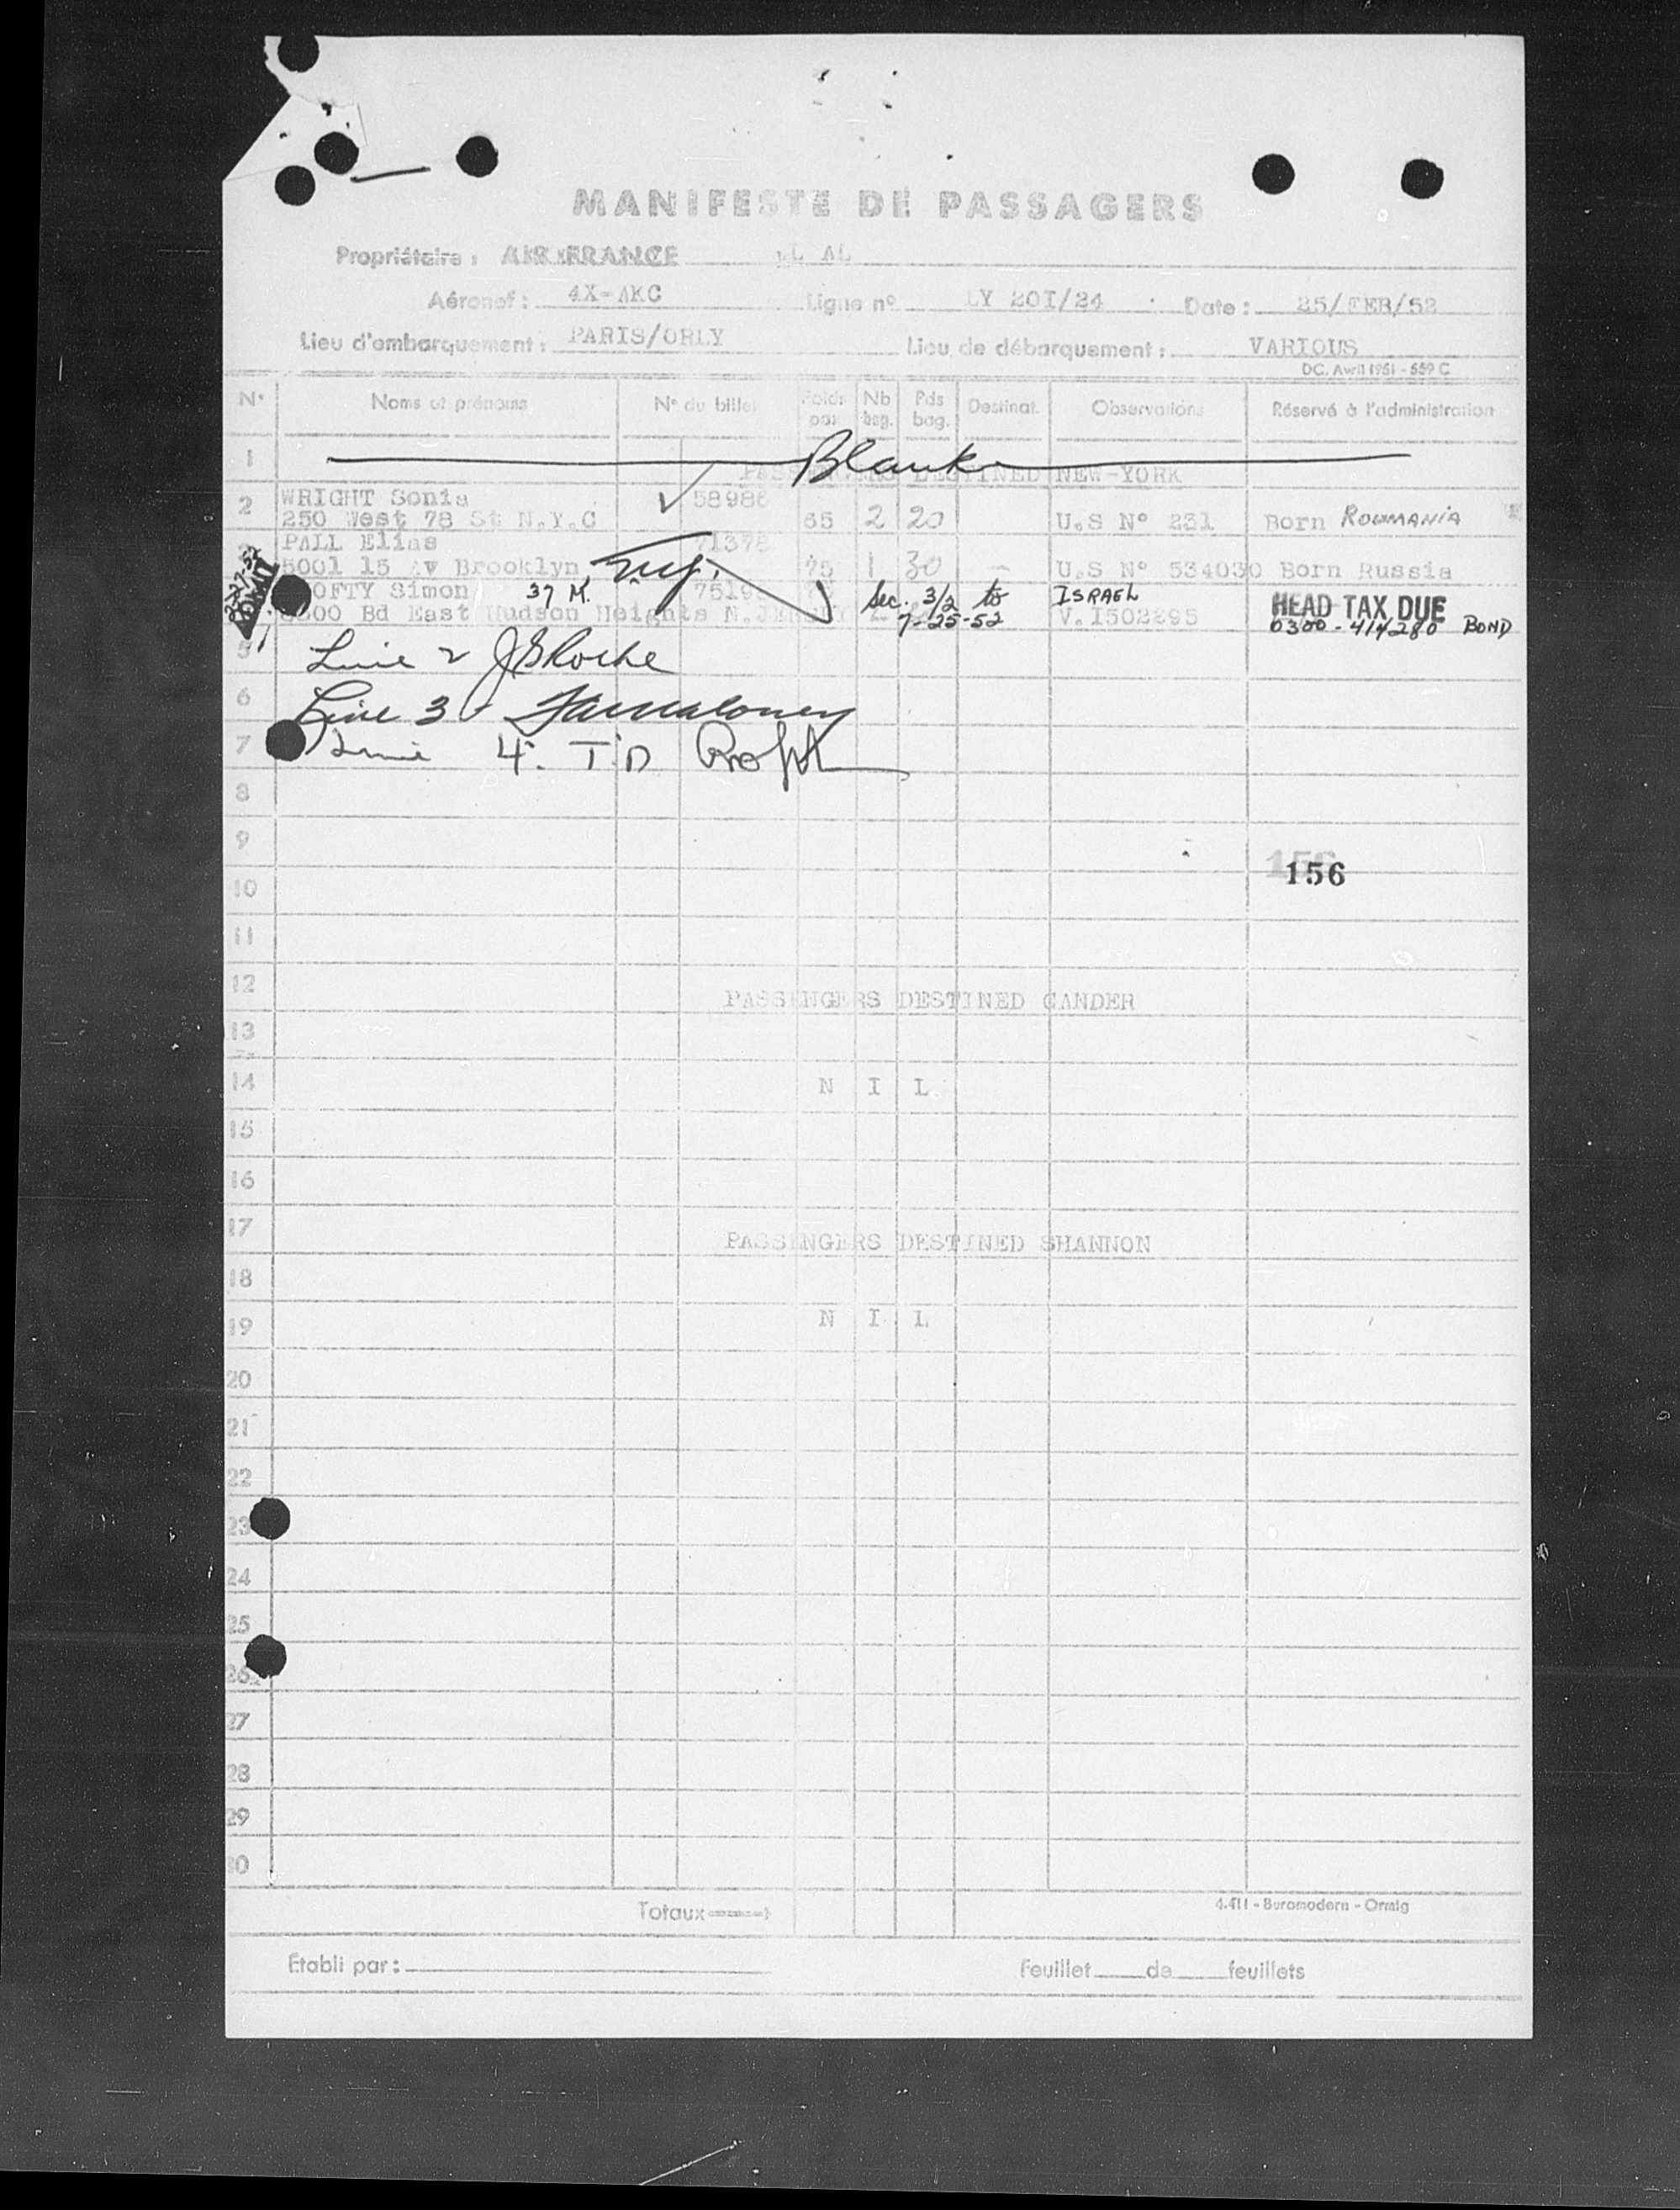 MANIFESTE DE PASSAGERS
Propriétaire : AIR FRANCE EL AL
Aéronef : 4X-AKC Ligne nº LY 20I/24 Date : 25/FEB/52
Lieu d'embarquement : PARIS/ORLY Lieu de débarquement : VARIOUS
DC. Avril 1951 - 559 C
Nº Noms et prénoms Nº du billet Poids pas Nb bag. Pds bag. Destinat. Observations Réservé à l'administration
1 Blank
PASSENGERS DESTINED NEW-YORK
2 WRIGHT Sonia 58986
250 West 78 St N.Y.C 65 2 20 U.S Nº 231 Born ROUMANIA
PALL Elias 71378
5001 15 Av Brooklyn 75 1 30 - U.S Nº 534030 Born Russia
OFTY Simon 37 M. Sec. 3/2 to ISRAEL HEAD TAX DUE
Bd East Hudson Heights N.JERSEY 7-25-52 V.I502295 0300-414280 BOND
5 Line 2 JS Roche
6 Line 3
7 Line 4. T.D
8
9
156
10
11
12
PASSENGERS DESTINED GANDER
13
14 N I L
15
16
17
PASSENGERS DESTINED SHANNON
18
19 N I L
20
21
22
23
24
25
26
27
28
29
30
Totaux
4.411 - Buromodern - Ormig
Etabli par :
Feuillet de feuillets